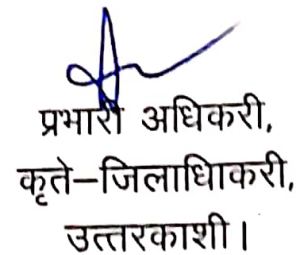 प्रभारी अधिकरी,
कृते–जिलाधिाकरी,
उत्तरकाशी।